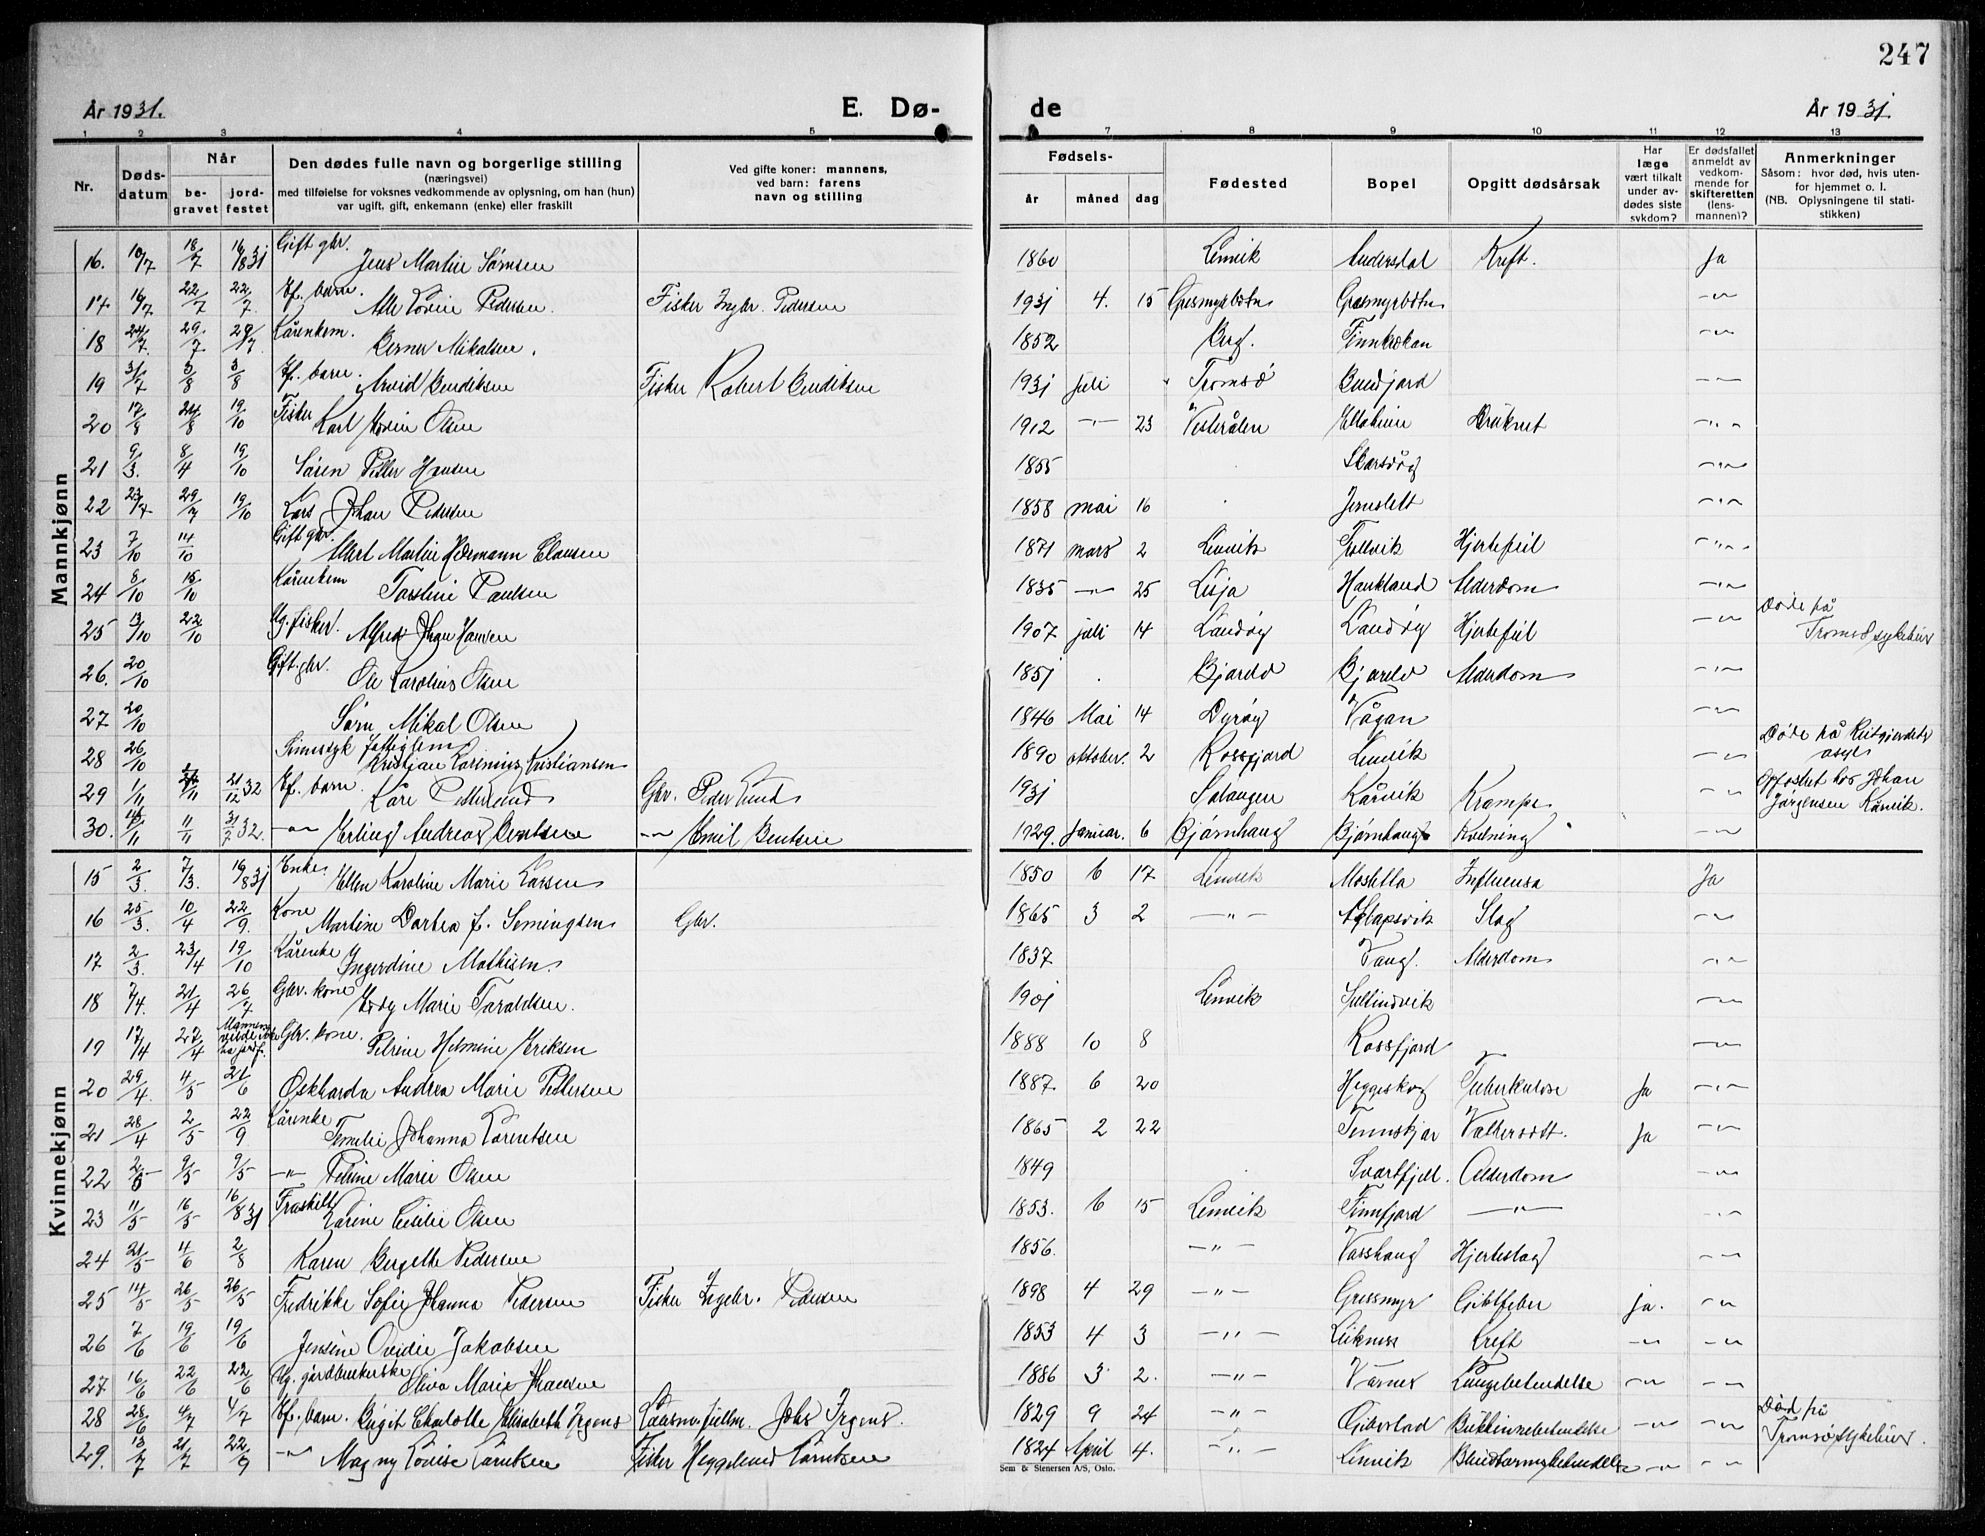 247
År 1931.
E. Dø-
de
År 1931.
1 2 3 4 5 7 8 9 10 11 12 13
Nr.
Døds-datum
Når
be-gravet
jord-festet
Den dødes fulle navn og borgerlige stilling
(næringsvei)
med tilføielse for voksnes vedkommende av oplysning, om han (hun)
var ugift, gift, enkemann (enke) eller fraskilt
Ved gifte koner: mannens,
ved barn: farens
navn og stilling
Fødsels-
år måned dag
Fødested
Bopel
Opgitt dødsårsak
Har læge vært tilkalt under av-dødes siste sykdom?
Er dødsfallet anmeldt av vedkom-mende for skifteretten (lens-mannen)?
Anmerkninger
Såsom: hvor død, hvis uten-
for hjemmet o. l.
(NB. Oplysningene til stati-
stikken)
Mannkjønn
16. 10/7 18/7 16/8 31 Gift gbr. Jens Martin Sørnsen 1860 Lenvik Andersdal Kreft. Ja
17 16/7 22/7 22/7 Ef. barn. Pedersen. Fisker Ingbr. Pedersen 1931 4. 15 Gresmyrbotn Gresmyrbotn -"-
18 24/7 29/7 29/7 Kårenkem. Berner Mikalsen. 1852 Berg. Finnkrokan -"-
19 31/7 3/8 3/8 Ef. barn. Arvid Bendiksen Fisker Robert Bendiksen 1931 juli Tromsø -"-
20 17/8 24/8 19/10 Fisker Karl Olsen 1912 -"- 23 Vesterålen Druknet -"-
21 9/3. 8/4 19/10 Søren Petter Hansen 1855 -"-
22 23/7 29/7 19/10 Lars Johan Pedersen 1858 mai 16 Jernslett -"-
23 7/10 14/10 Gift gbr. Albert Martin Hermann Clausen 1871 mars 2 Lenvik Trollvik Hjertefeil -"-
24 8/10 15/10 Kårenkem Torstine Paulsen 1835 -"- 25 Lesja Haukland Alderdom -"-
25 13/10 22/10 Ug. fisker. Alfred Johan Hansen 1907 juli 14 Landøy Landøy Hjertefeil -"- Døde på Tromsø sykehus
26. 20/10 Gift gbr. Ole Karolius Olsen 1851 Bjorelv Bjorelv Alderdom -"-
27 20/10 Sørn Mikal Olsen 1846 Mai 14 Dyrøy Vågan -"-
28 26/10 Sinnssyk fattiglem Kristian Lorennius Kristiansen 1890 oktober. 2 Rossfjord Lenvik -"- Døde på asyl
29 1/11 /11 21/12 32 Ef. barn. Kåre Petter Lund Gbr. Peder Lund 1931 Salangen Kårvik Krampe -"- Opfostret hos Johan Jørgensen Kårvik.
30. /11 11/11 31/7 32. -"- Erling Andreas Bentsen -"- Emil Bentsen 1929. Januar. 6 Bjørnhaug Bjørnhaug Kvelning -"-
Kvinnekjønn
15 2/3 7/3. 16/8 31 Enke Ellen Karoline Marie Larsen 1850 6 17 Lenvik Mosletta Influensa Ja
16 25/3. 10/4 22/9. Kone Martine Dortea f. Simingsen Gbr. 1865 3 2 -"- Slag -"-
17 2/3. 23/4 19/10 Kårenke Ingerdine Mathisen 1837 Vang. Alderdom -"-
18 7/4. 21/4 26/7 Gbr. kone Marie Taraldsen. 1901 Lenvik Sultindvik -"-
19 17/4 27/4 Mannen vilde ikke ha jordf. Gbr. kone. Petrine Helmine Eriksen 1888 10 8 Rossfjord -"-
20 29/4. 4/5 21/6 Oskharda Andrea Marie Pettersen 1887. 6 20 Heggeskog Tuberkulose Ja -"-
21 28/4 2/5 22/9 Kårenke Johanna Lorentsen 1865 2 22 Finnskjær Vattersott. Ja -"-
22 2/5 9/5 9/5 -"- Petrine Marie Olsen 1849 Svartfjell. Alderdom -"-
23 11/5 16/5 16/8 31 Fraskilt Karine Cecilie Olsen 1853. 6 15 Lenvik Finnfjord -"- -"-
24 21/5 4/6 2/8 Karen Bergette Pedersen 1856. -"- Vasshaug Hjerteslag -"-
25 14/5 26/5 26/5 Fredrikke Sofie Johanna Pedersen Fisker Ingebr. Pedersen 1898 4 29 -"- Gressmyr Giktfeber ja. -"-
26 7/6 19/6 19/6 Jensine Ovidie Jakobsen 1853 4 3 -"- Leiknes Kreft -"- -"-
27 16/6 22/6 22/6 Ug. gårdbrukerske Oliva Marie Hansen 1886 3 2. -"- Lungebetendelse -"- -"-
28 28/6 4/7 4/7 Ef. barn. Birgit Charlotte Elisabeth Irgens Joh. Irgens. 1829 9 24 -"- Gibostad Bukhinnebetendelse -"- -"- Død på Tromsø sykehus.
29. 13/7 21/7 22/9 -"- Magny Lovise Lorentsen Fisker Heggelund Lorentsen 1824 April 4. -"- Lenvik Blindtarmsbetendelse -"- -"-
Sem & Stenersen A/S, Oslo.